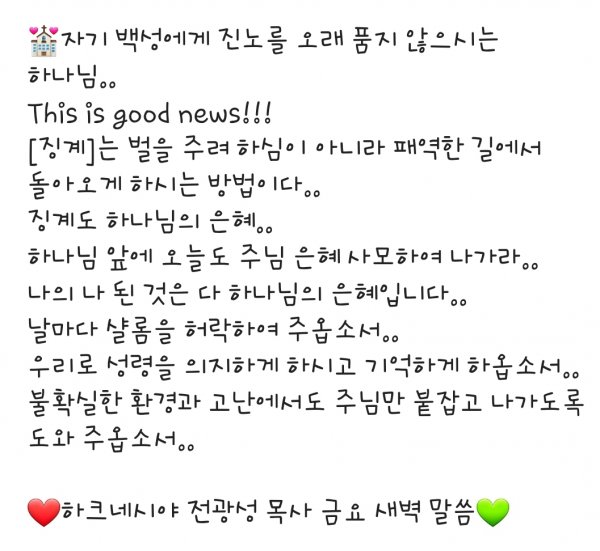 💒자기 백성에게 진노를 오래 품지 않으시는
하나님。。
This is good news!!!
[징계]는 벌을 주려 하심이 아니라 패역한 길에서
돌아오게 하시는 방법이다。。
징계도 하나님의 은혜。。
하나님 앞에 오늘도 주님 은혜 사모하여 나가라。。
나의 나 된 것은 다 하나님의 은혜입니다。。
날마다 샬롬을 허락하여 주옵소서。。
우리로 성령을 의지하게 하시고 기억하게 하옵소서。。
불확실한 환경과 고난에서도 주님만 붙잡고 나가도록
도와 주옵소서。。
❤️하크네시야 전광성 목사 금요 새벽 말씀💚